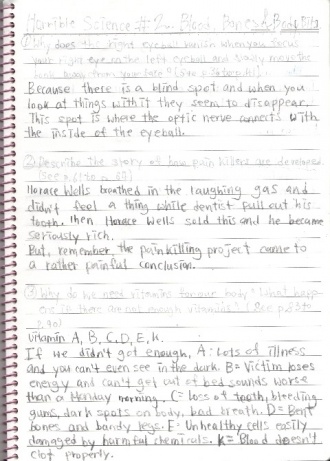 Horrible Science #2 Blood Bones & Body Bits
① Why does the right eyeball vanish when you focus
your right eye on the left eyeball and slowly move the
book away from your face? (See p. to p.)
Because there is a blind spot and when you
look at things with it they seem to disappear.
This spot is where the optic nerve connects with
the inside of the eyeball.
② Describe the story of how pain killers are developed
(See p. 61 to p. )
Horace Wells breathed in the laughing gas and
didn't feel a thing while dentist pull out his
tooth, then Horace Wells sold this and he became
seriously rich.
But, remember, the painkilling project came to
a rather painful conclusion.
③ Why do we need vitamins for our body? What happ-
ens if there are not enough vitamins? (See p. 83 to
p. 90)
Vitamin A, B, C, D, E, K.
If we didn't got enough, A: Lots of illness
and you can't even see in the dark. B= Victim loses
energy and can't get out of bed sounds worse
than a Monday morning. C= loss of tooth, bleeding
gums, dark spots on body, bad breath. D= Bent
bones and bandy legs. E= Unhealthy cells easily
damaged by harmful chemicals. K= Blood doesn't
clot properly.